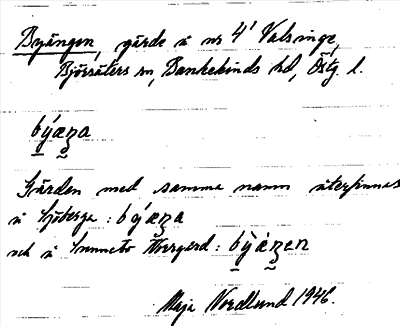 Byängen, gärde å nr 4¹ Valsinge,
Björsäters sn, Bankekinds hd, Östg. l.
býæŋa
Gärden med samma namn återfinnas
å Sjöberga: býæŋa
och å Sunneto Norrgård: bỳàŋen
Maja Nordlund 1946.